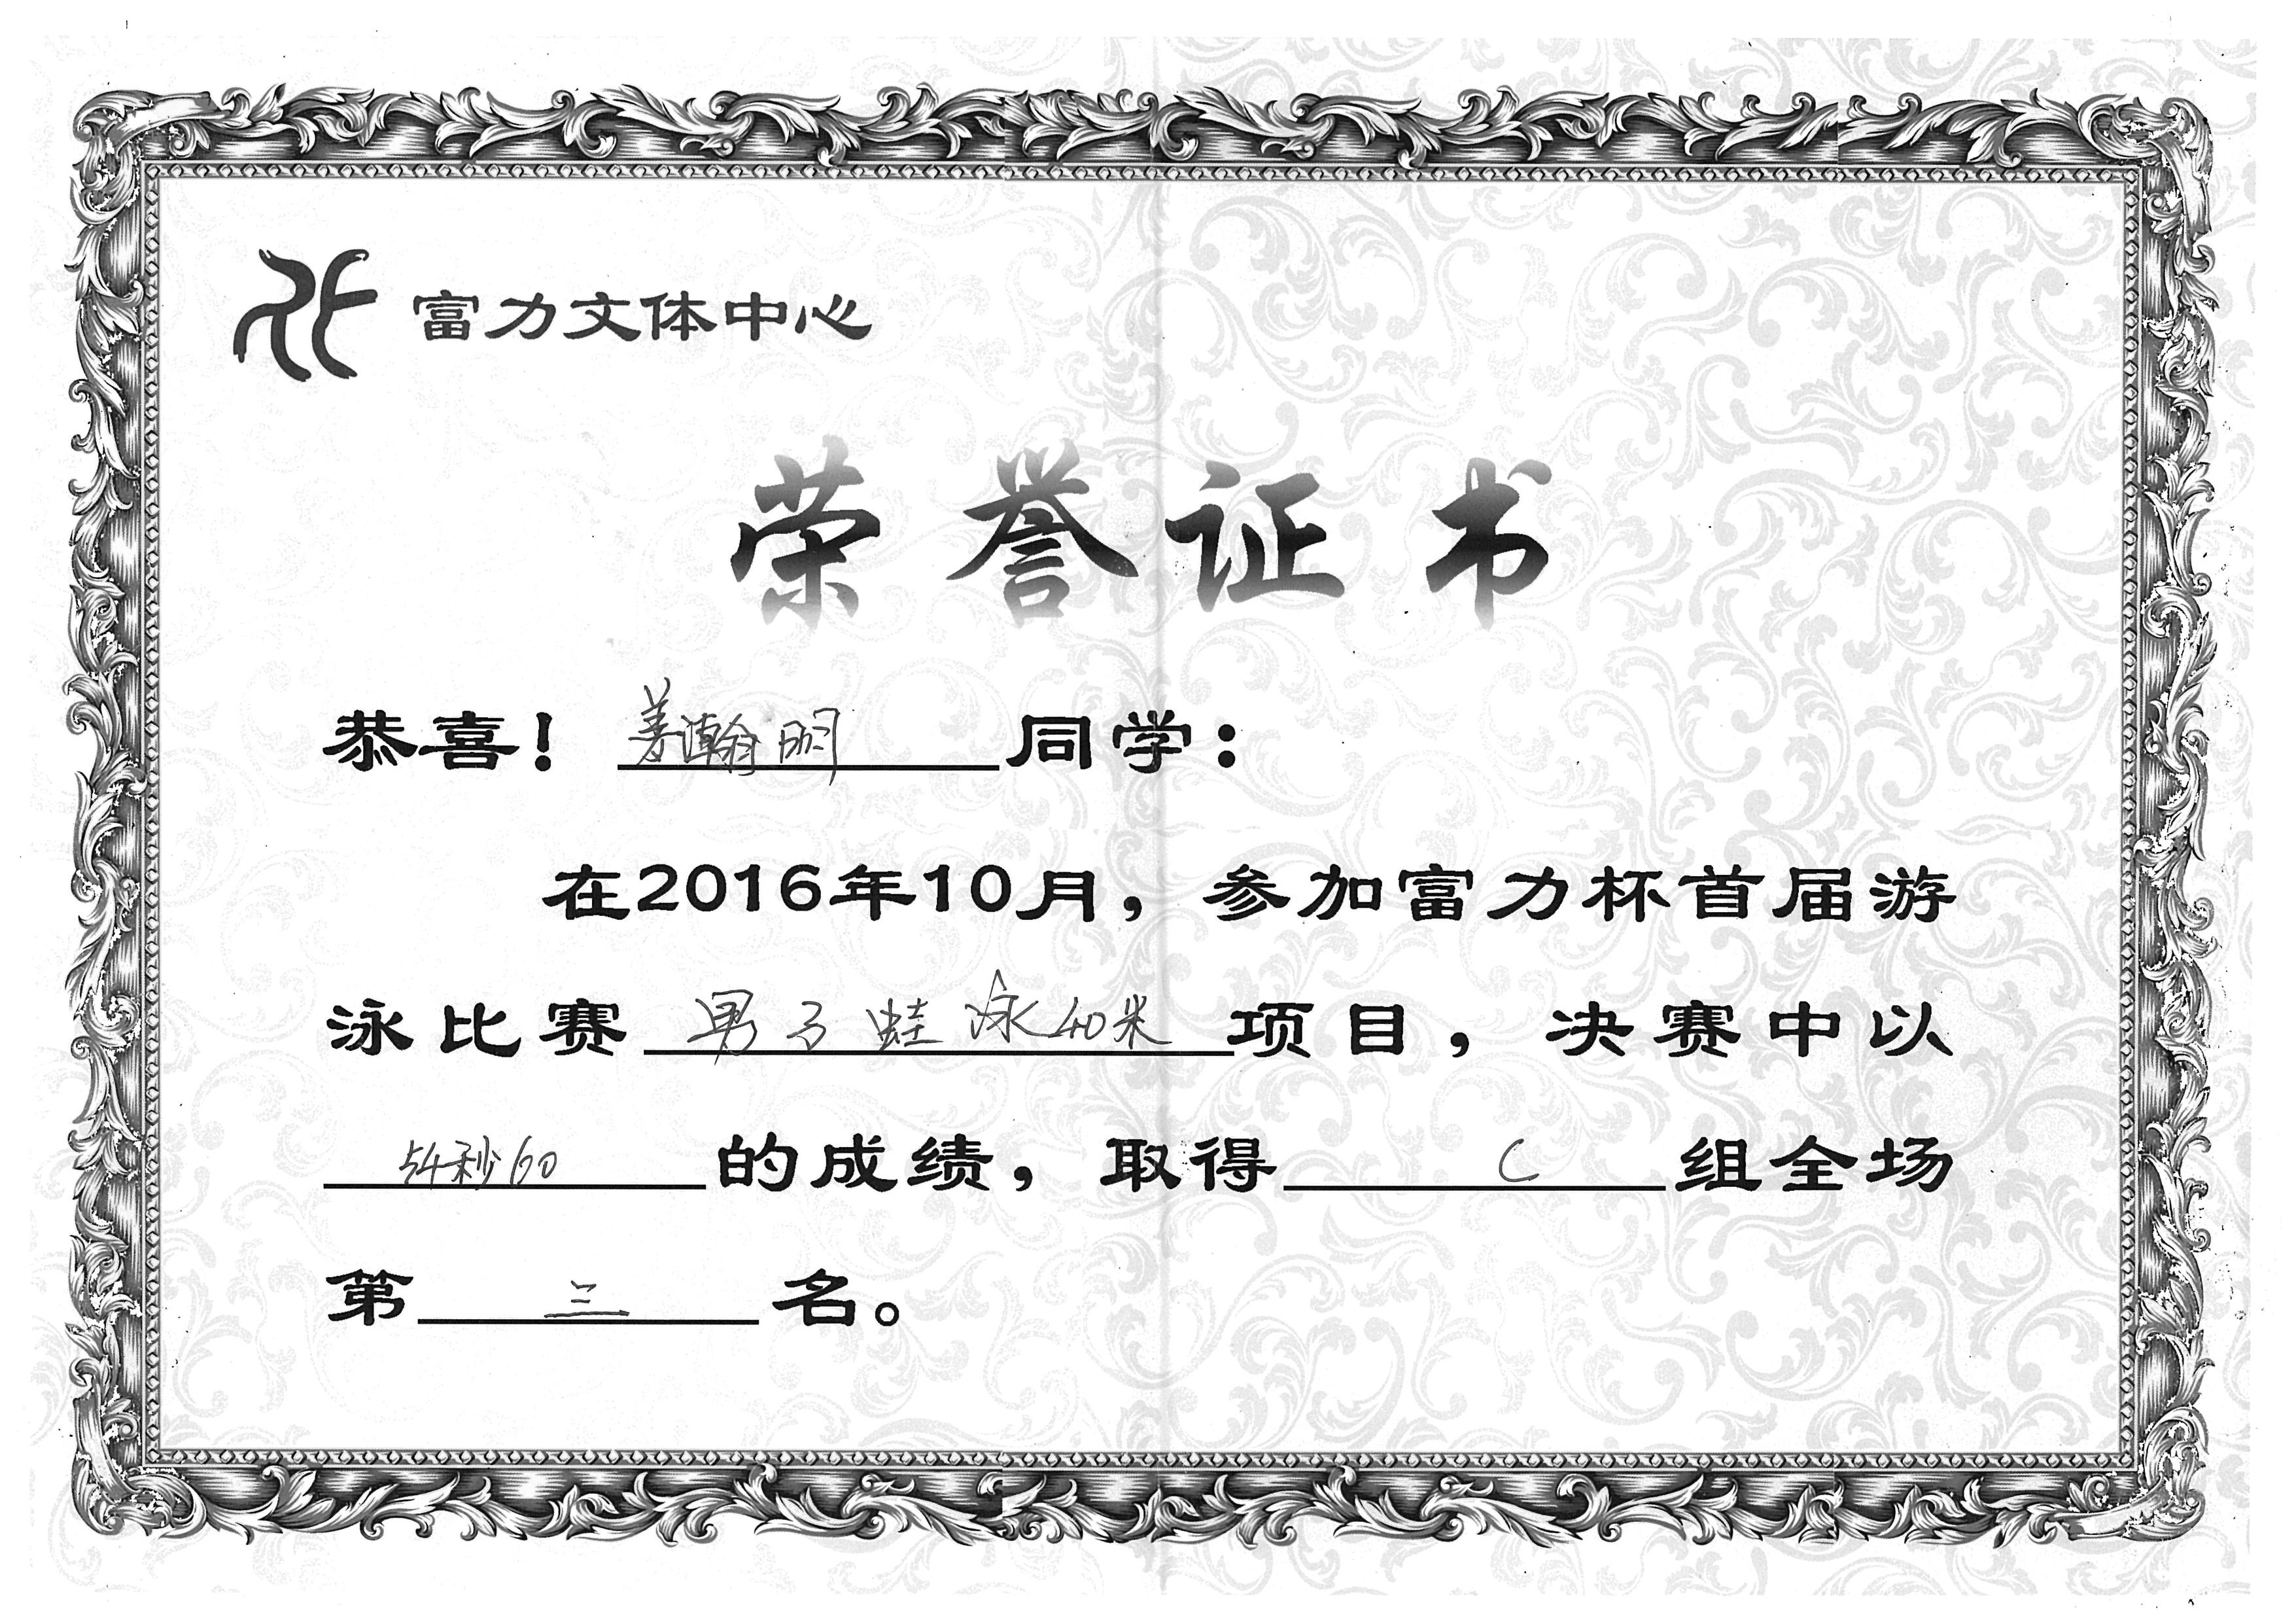 富力文体中心
荣誉证书
恭喜！姜瀚明同学：
在2016年10月，参加富力杯首届游
泳比赛男子蛙泳40米项目，决赛中以
54秒60的成绩，取得C组全场
第三名。